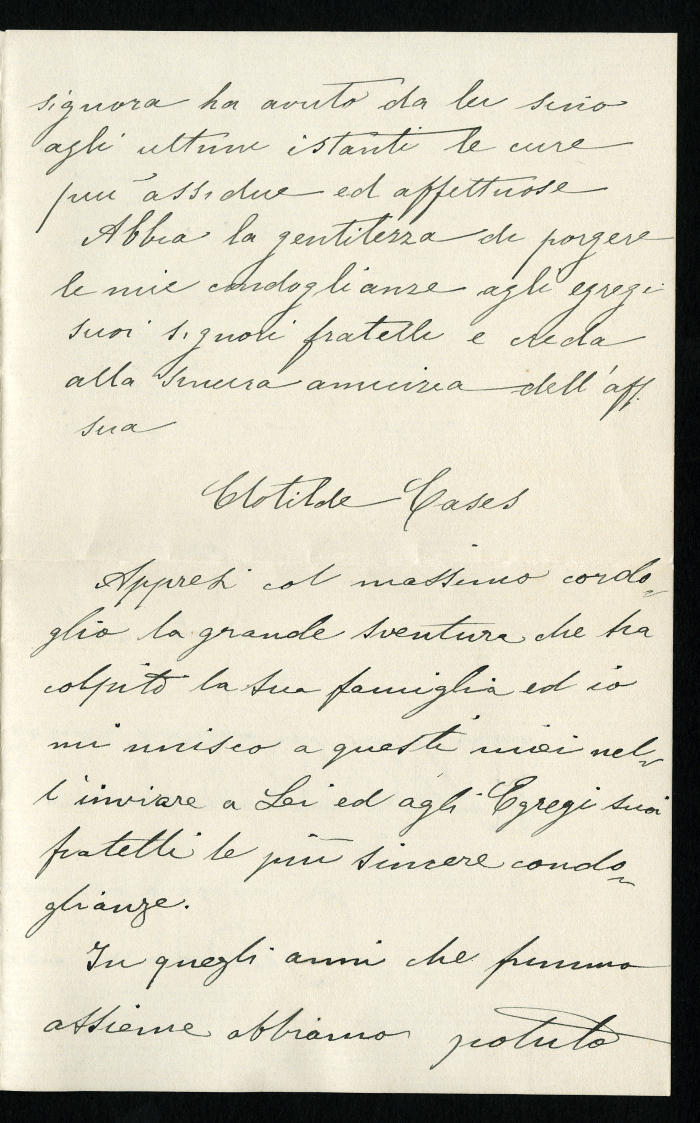 signora ha avuto da lei sino
agli ultimi istanti le cure
più assidue ed affettuose
Abbia la gentilezza di porgere
le mie condoglianze agli egregi
suoi signori fratelli e creda
alla sincera amicizia dell'aff.
sua
Clotilde Cases
Appresi col massimo cordo-
glio la grande sventura che ha
colpito la sua famiglia ed io
mi unisco a questi miei nel-
l'inviare a Lei ed agli Egregi suoi
fratelli le più sincere condo-
glianze.
In quegli anni che fummo
assieme abbiamo potuto